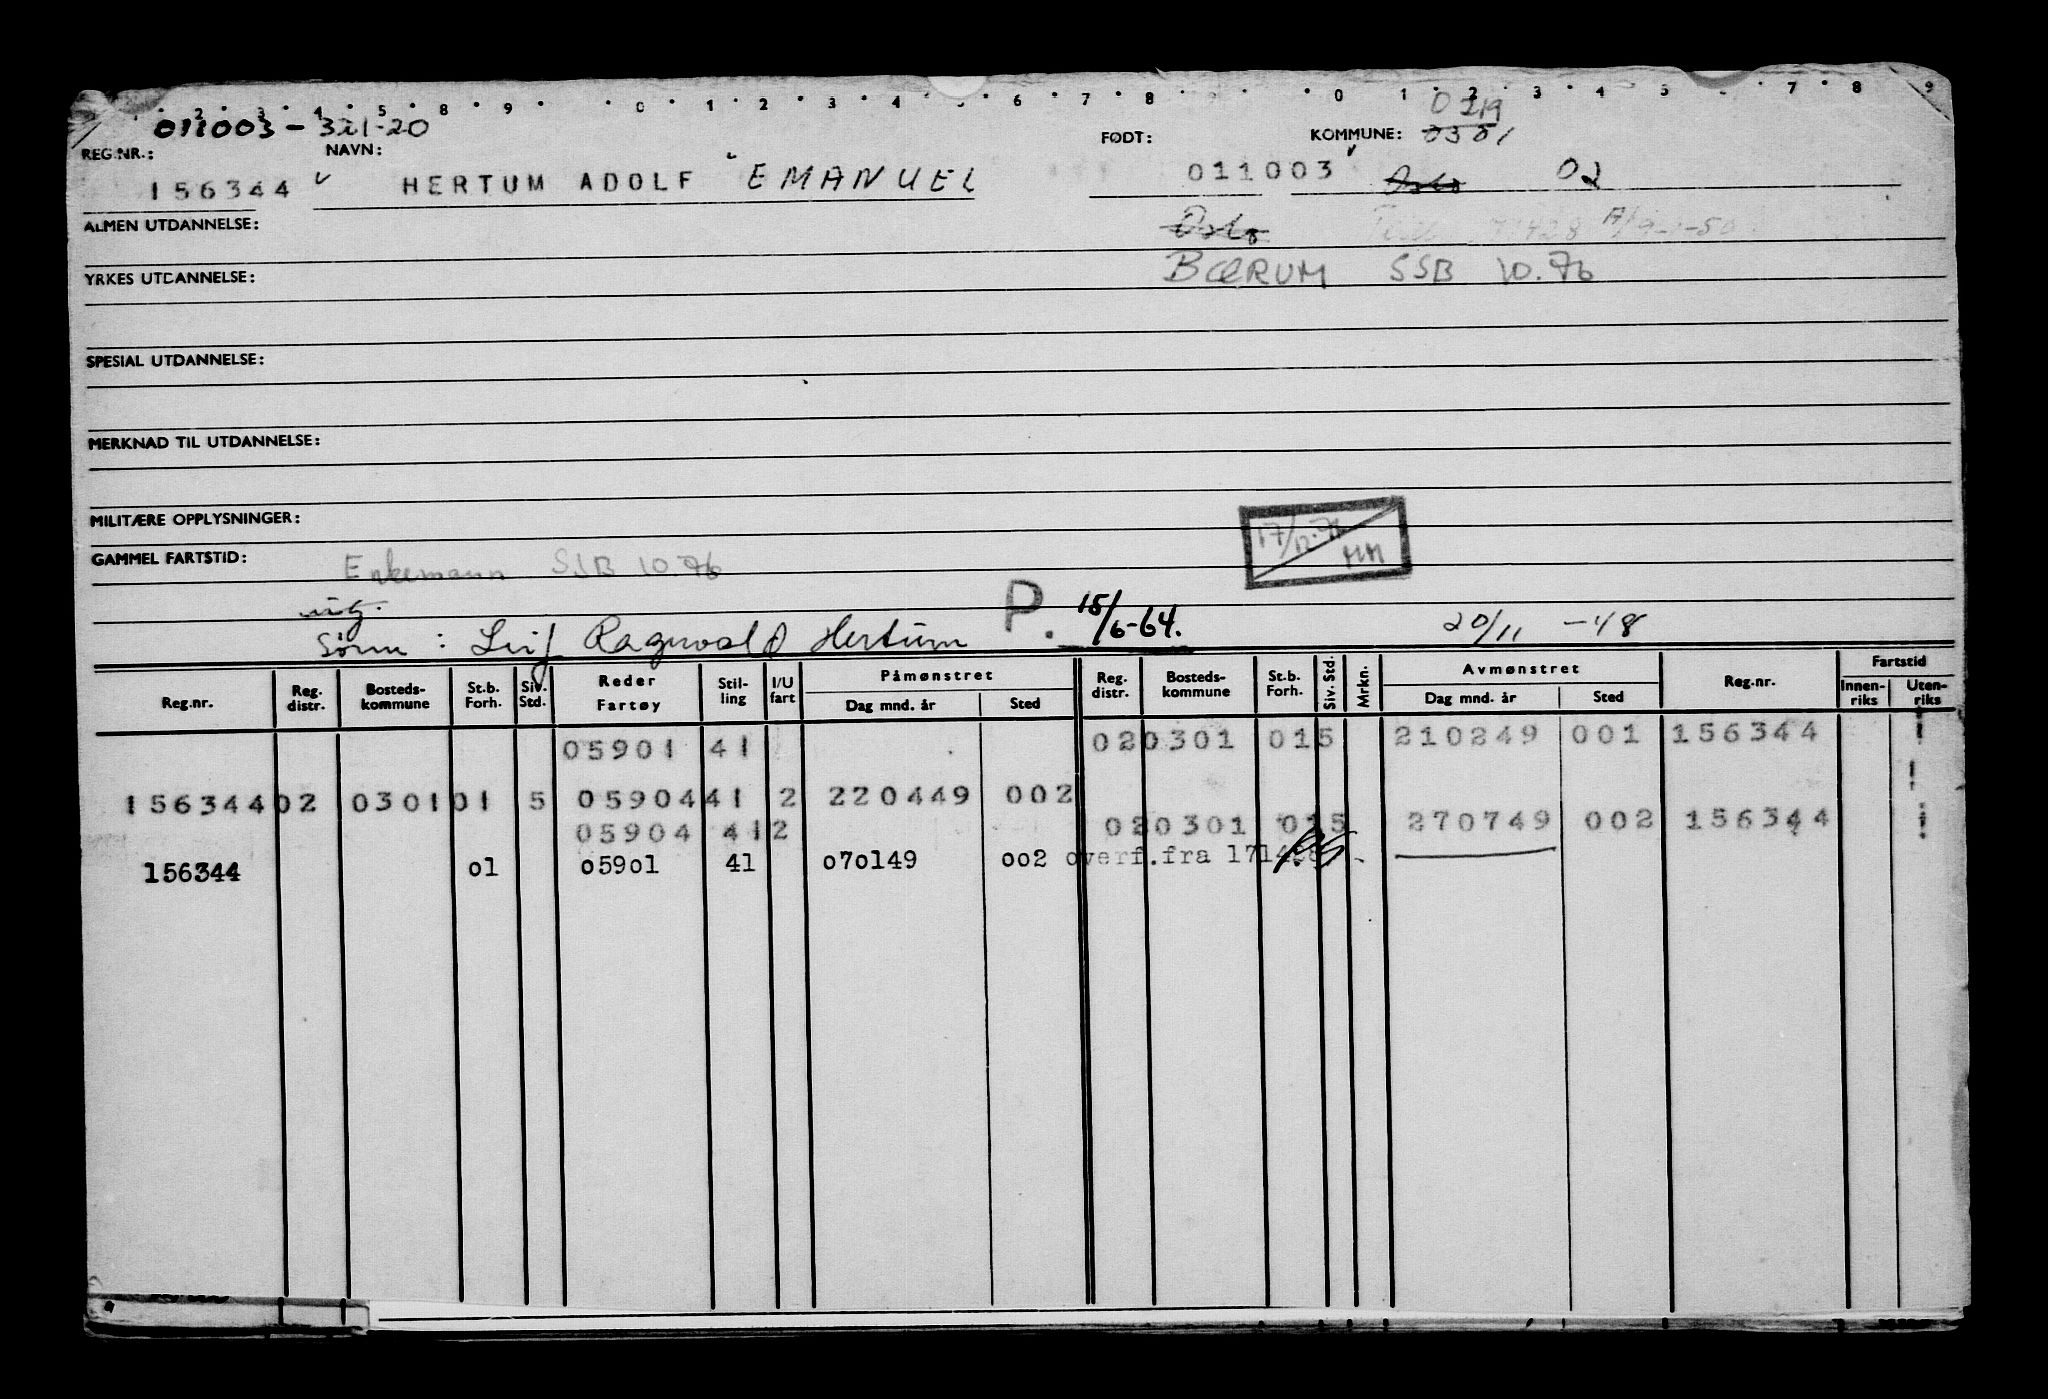 2 3 4 5 8 9 0 1 2 3 4 5 6 7 8 9 0 1 2 3 4 5 7 8 9
011003-321-20
0219
REG.NR.: NAVN: FØDT: KOMMUNE: 0301
156344 HERTUM ADOLF EMANUEL 011003 Oslo 02
ALMEN UTDANNELSE: Oslo 71428 A/9-1-50
YRKES UTDANNELSE: BÆRUM SSB 10.76
SPESIAL UTDANNELSE:
MERKNAD TIL UTDANNELSE:
MILITÆRE OPPLYSNINGER: 17/12-76 HM
GAMMEL FARTSTID: Enkemann SSB 10.76
P. 15/6-64. 20/11-48
Sønn: Leif Ragnvald Hertum
Reg.nr. Reg. distr. Bosteds-kommune St.b. Forh. Siv. Std. Reder Fartøy Stil-ling I/U fart Påmønstret Dag mnd. år Sted Reg. distr. Bosteds-kommune St.b. Forh. Siv. Std. Mrkn. Avmønstret Dag mnd. år Sted Reg.nr. Fartstid Innen-riks Uten-riks
05901 41 020301 015 210249 001 156344
156344 02 0301 01 5 05904 41 2 220449 002
05904 41 2 020301 015 270749 002 156344
156344 01 05901 41 070149 002 overf.fra 171428